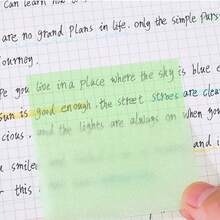 can learn how
are no grand plans in life. only the simple purs
journey.
pe you live in a place where the sky is blue e
sun is good enough. the street stores are clea
cious. and the lights are always on when you
smile and i
for this.